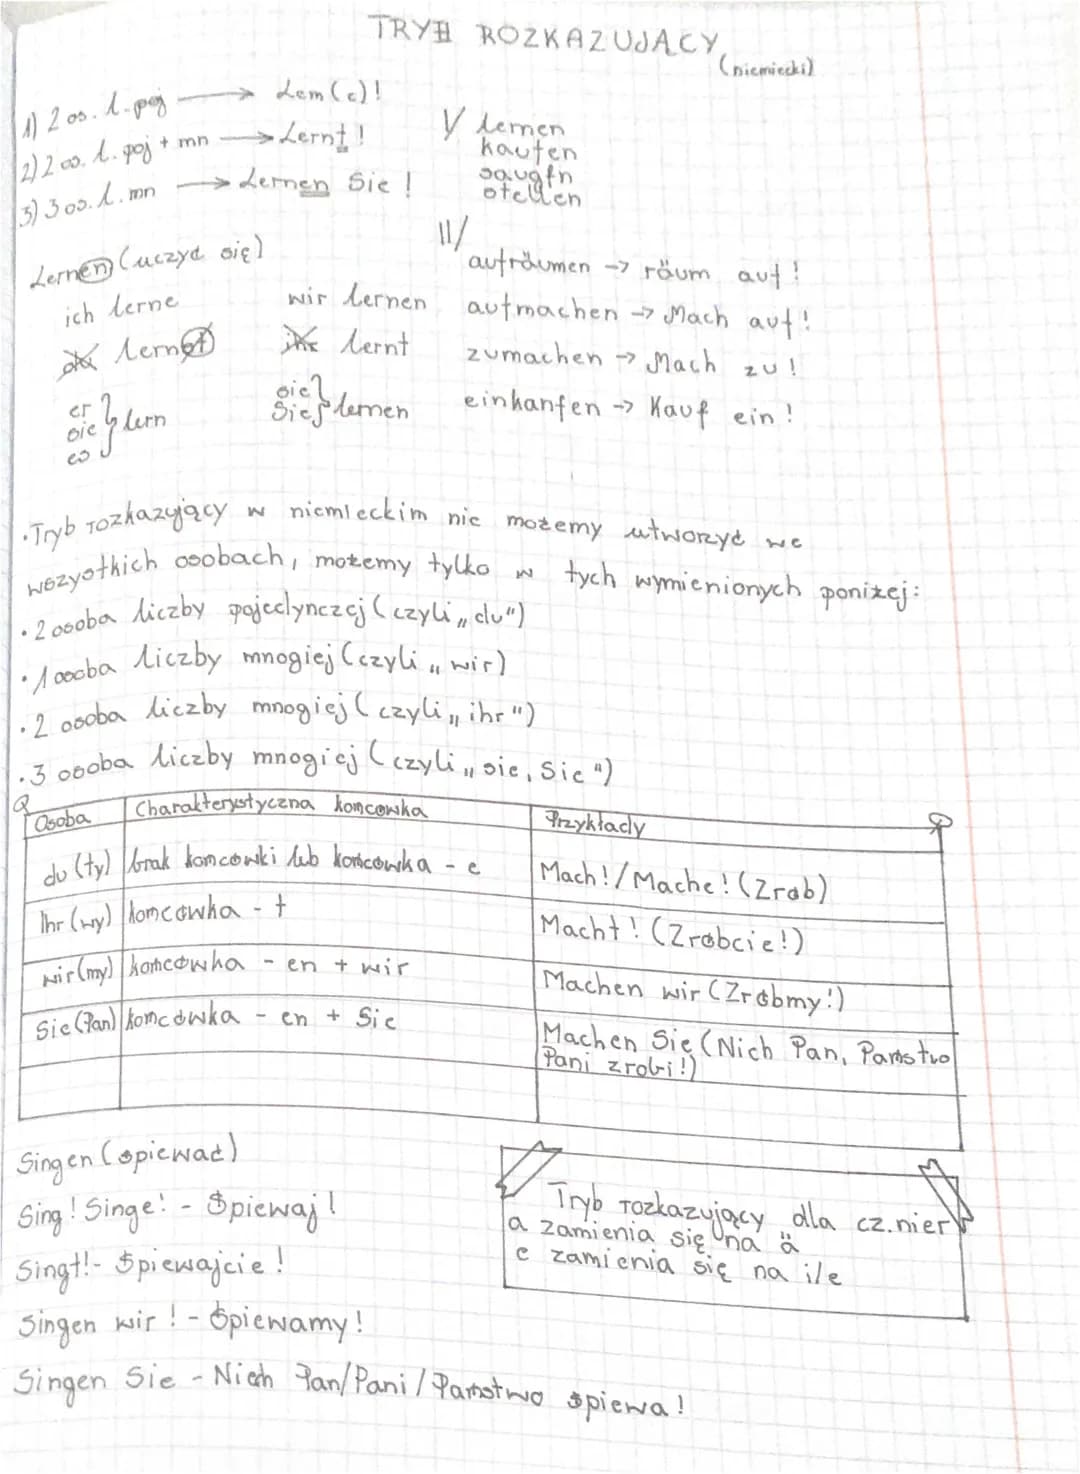 TRYB ROZKAZUJĄCY
(niemiecki)
1) 2 os. l. poj → Lern(e)!
2) 2 os. l. poj + mn → Lernt!
3) 3 os. l. mn → Lernen Sie!
I/ lernen
kaufen
saugen
stellen
Lernen (uczyć się)
ich lerne
du lernst
er
sie
es
lern
wir lernen
ihr lernt
sie
Sie
lernen
II/
aufräumen → räum auf!
aufmachen → Mach auf!
zumachen → Mach zu!
einkaufen → Kauf ein!
• Tryb rozkazujący w niemieckim nie możemy utworzyć we
wszystkich osobach, możemy tylko w tych wymienionych poniżej:
• 2 osoba liczby pojedynczej (czyli „du")
• 1 osoba liczby mnogiej (czyli „wir)
• 2 osoba liczby mnogiej (czyli „ihr")
• 3 osoba liczby mnogiej (czyli „sie, Sie")
Osoba Charakterystyczna końcówka Przykłady
du (ty) brak końcówki lub końcówka - e Mach!/Mache! (Zrób)
Ihr (wy) końcówka - t Macht! (Zróbcie!)
wir (my) końcówka - en + wir Machen wir (Zróbmy!)
Sie (Pan) końcówka - en + Sie Machen Sie (Niech Pan, Państwo
Pani zrobi!)
Singen (śpiewać)
Sing! Singe! - Śpiewaj!
Singt! - Śpiewajcie!
Singen wir! - Śpiewamy!
Singen Sie - Niech Pan/Pani/Państwo śpiewa!
Tryb rozkazujący dla cz. nier
a zamienia się na ä
e zamienia się na i/e